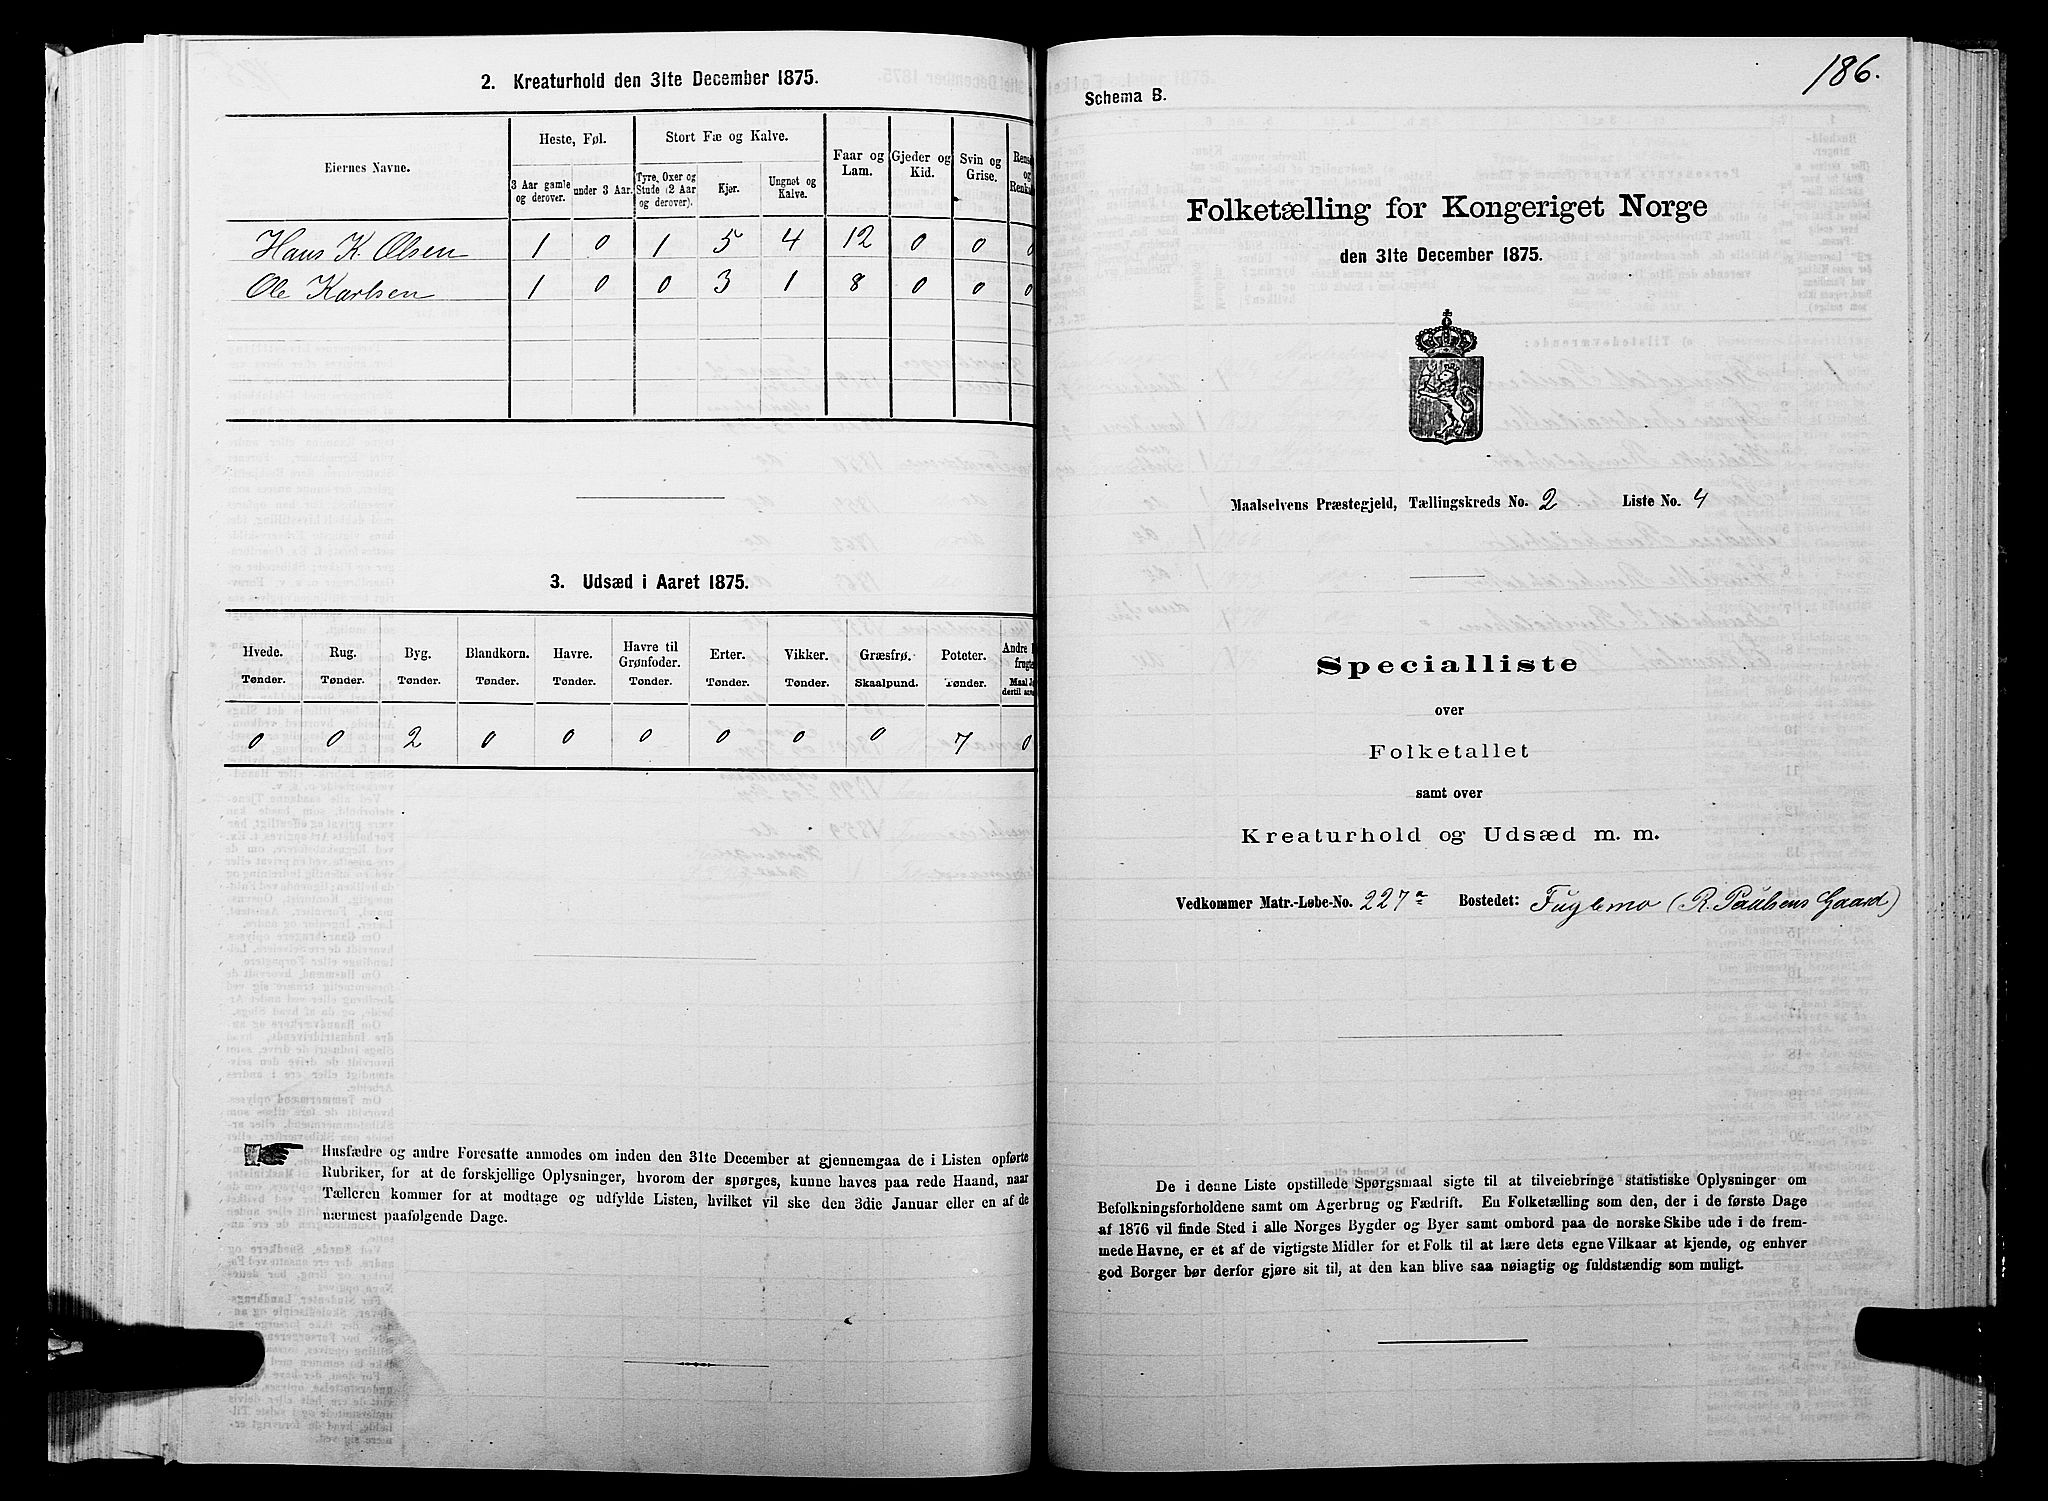 2. Kreaturhold den 31te December 1875.
Eiernes Navne.
Heste, Føl.
Stort Fæ og Kalve.
Faar og Lam.
Gjeder og Kid.
Svin og Grise.
3 Aar gamle og derover.
under 3 Aar.
Tyre, Oxer og Stude (2 Aar og derover).
Kjør.
Ungnøt og Kalve.
Hans K. Olsen 1 0 1 5 4 12 0 0 0
Ole Karlsen 1 0 0 3 1 8 0 0 0
3. Udsæd i Aaret 1875.
Hvede. Rug. Byg. Blandkorn. Havre. Havre til Grønfoder. Erter. Vikker. Græsfrø. Poteter. Andre
Tønder. Tønder. Tønder. Tønder. Tønder. Tønder. Tønder. Tønder. Skaalpund. Tønder.
0 0 2 0 0 0 0 0 0 7 0
Husfædre og andre Foresatte anmodes om inden den 31te December at gjennemgaa de i Listen opførte
Rubriker, for at de forskjellige Oplysninger, hvorom der spørges, kunne haves paa rede Haand, naar
Tælleren kommer for at modtage og udfylde Listen, hvilket vil ske den 3die Januar eller en af de
nærmest paafølgende Dage.
186.
Schema B.
Folketælling for Kongeriget Norge
den 31te December 1875.
Maalselvens Præstegjeld, Tællingskreds No. 2 Liste No. 4
Specialliste
over
Folketallet
samt over
Kreaturhold og Udsæd m. m.
Vedkommer Matr.-Løbe-No. 227a Bostedet: Fuglemo (R. Paulsens Gaard)
De i denne Liste opstillede Spørgsmaal sigte til at tilveiebringe statistiske Oplysninger om
Befolkningsforholdene samt om Agerbrug og Fædrift. En Folketælling som den, der i de første Dage
af 1876 vil finde Sted i alle Norges Bygder og Byer samt ombord paa de norske Skibe ude i de frem-
mede Havne, er et af de vigtigste Midler for et Folk til at lære dets egne Vilkaar at kjende, og enhver
god Borger bør derfor gjøre sit til, at den kan blive saa nøiagtig og fuldstændig som muligt.